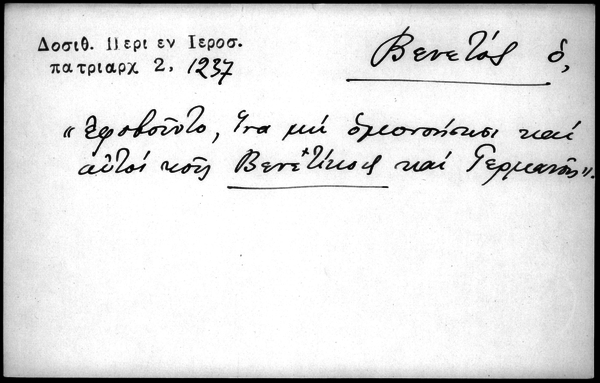 Δοσιθ. Περι εν Ιεροσ.
πατριαρχ 2, 1237
Βενετός ὁ,
"Ἐφοβοῦντο, ἵνα μή ὁμονοήσωσι καί
αὐτοί τούς Βενετίκους καί Γερμανούς".